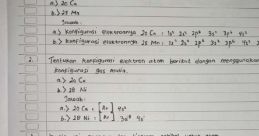 a.) 20 Ca
b.) 25 Mn
Jawab:
a.) Konfigurasi elektronnya 20 Ca : 1s² 2s² 2p⁶ 3s² 3p⁶ 4s²
b.) Konfigurasi elektronnya 25 Mn : 1s² 2s² 2p⁶ 3s² 3p⁶ 4s²
2. Tentukan konfigurasi elektron atom berikut dengan menggunakan
konfigurasi gas mulia.
a.) 20 Ca
b.) 28 Ni
Jawab:
a.) 20 Ca : [Ar] 4s²
b.) 28 Ni : [Ar] 3d⁸ 4s²